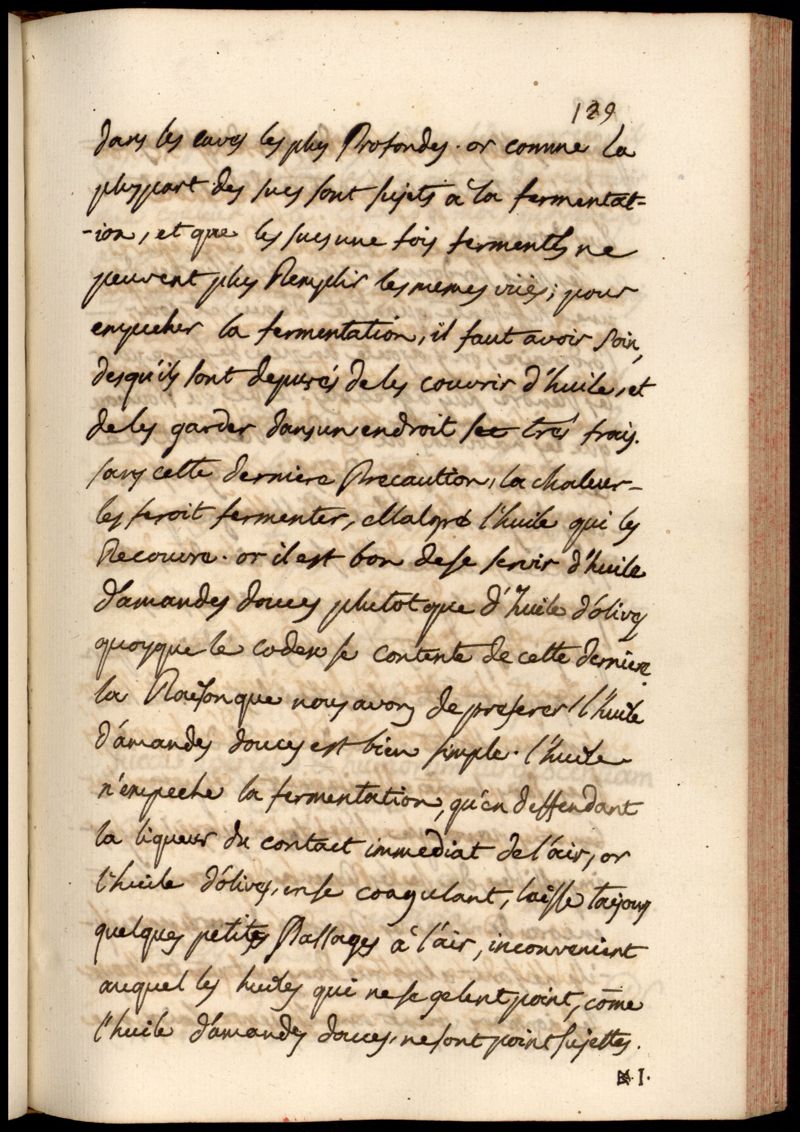 139
dans les caves les plus Profondes. or comme la
pluspart des sucs sont sujets à la fermentat-
-ion, et que les sucs une fois fermentés ne
peuvent plus Remplir les memes vües; pour
empecher la fermentation, il faut avoir soin,
desqu'ils sont depurés de les couvrir d'huile, et
de les garder dans un endroit sec très frais.
sans cette derniere Precaution, la chaleur-
les feroit fermenter, Malgré l'huile qui les
Recouvre. or il est bon de se servir d'huile
d'amandes douces plutot que d'huile d'olives
quoyque le codex se contente de cette derniere.
la Raison que nous avons de preferer l'huile
d'amandes douces est bien simple. l'huile
n'empeche la fermentation, qu'en deffendant
la liqueur du contact immediat de l'air, or
l'huile d'olives, en se coagulant, laisse toujours
quelques petits Passages à l'air, inconvenient
auquel les huiles qui ne se gelent point, come
l'huile d'amandes douces, ne sont point sujettes.
I.